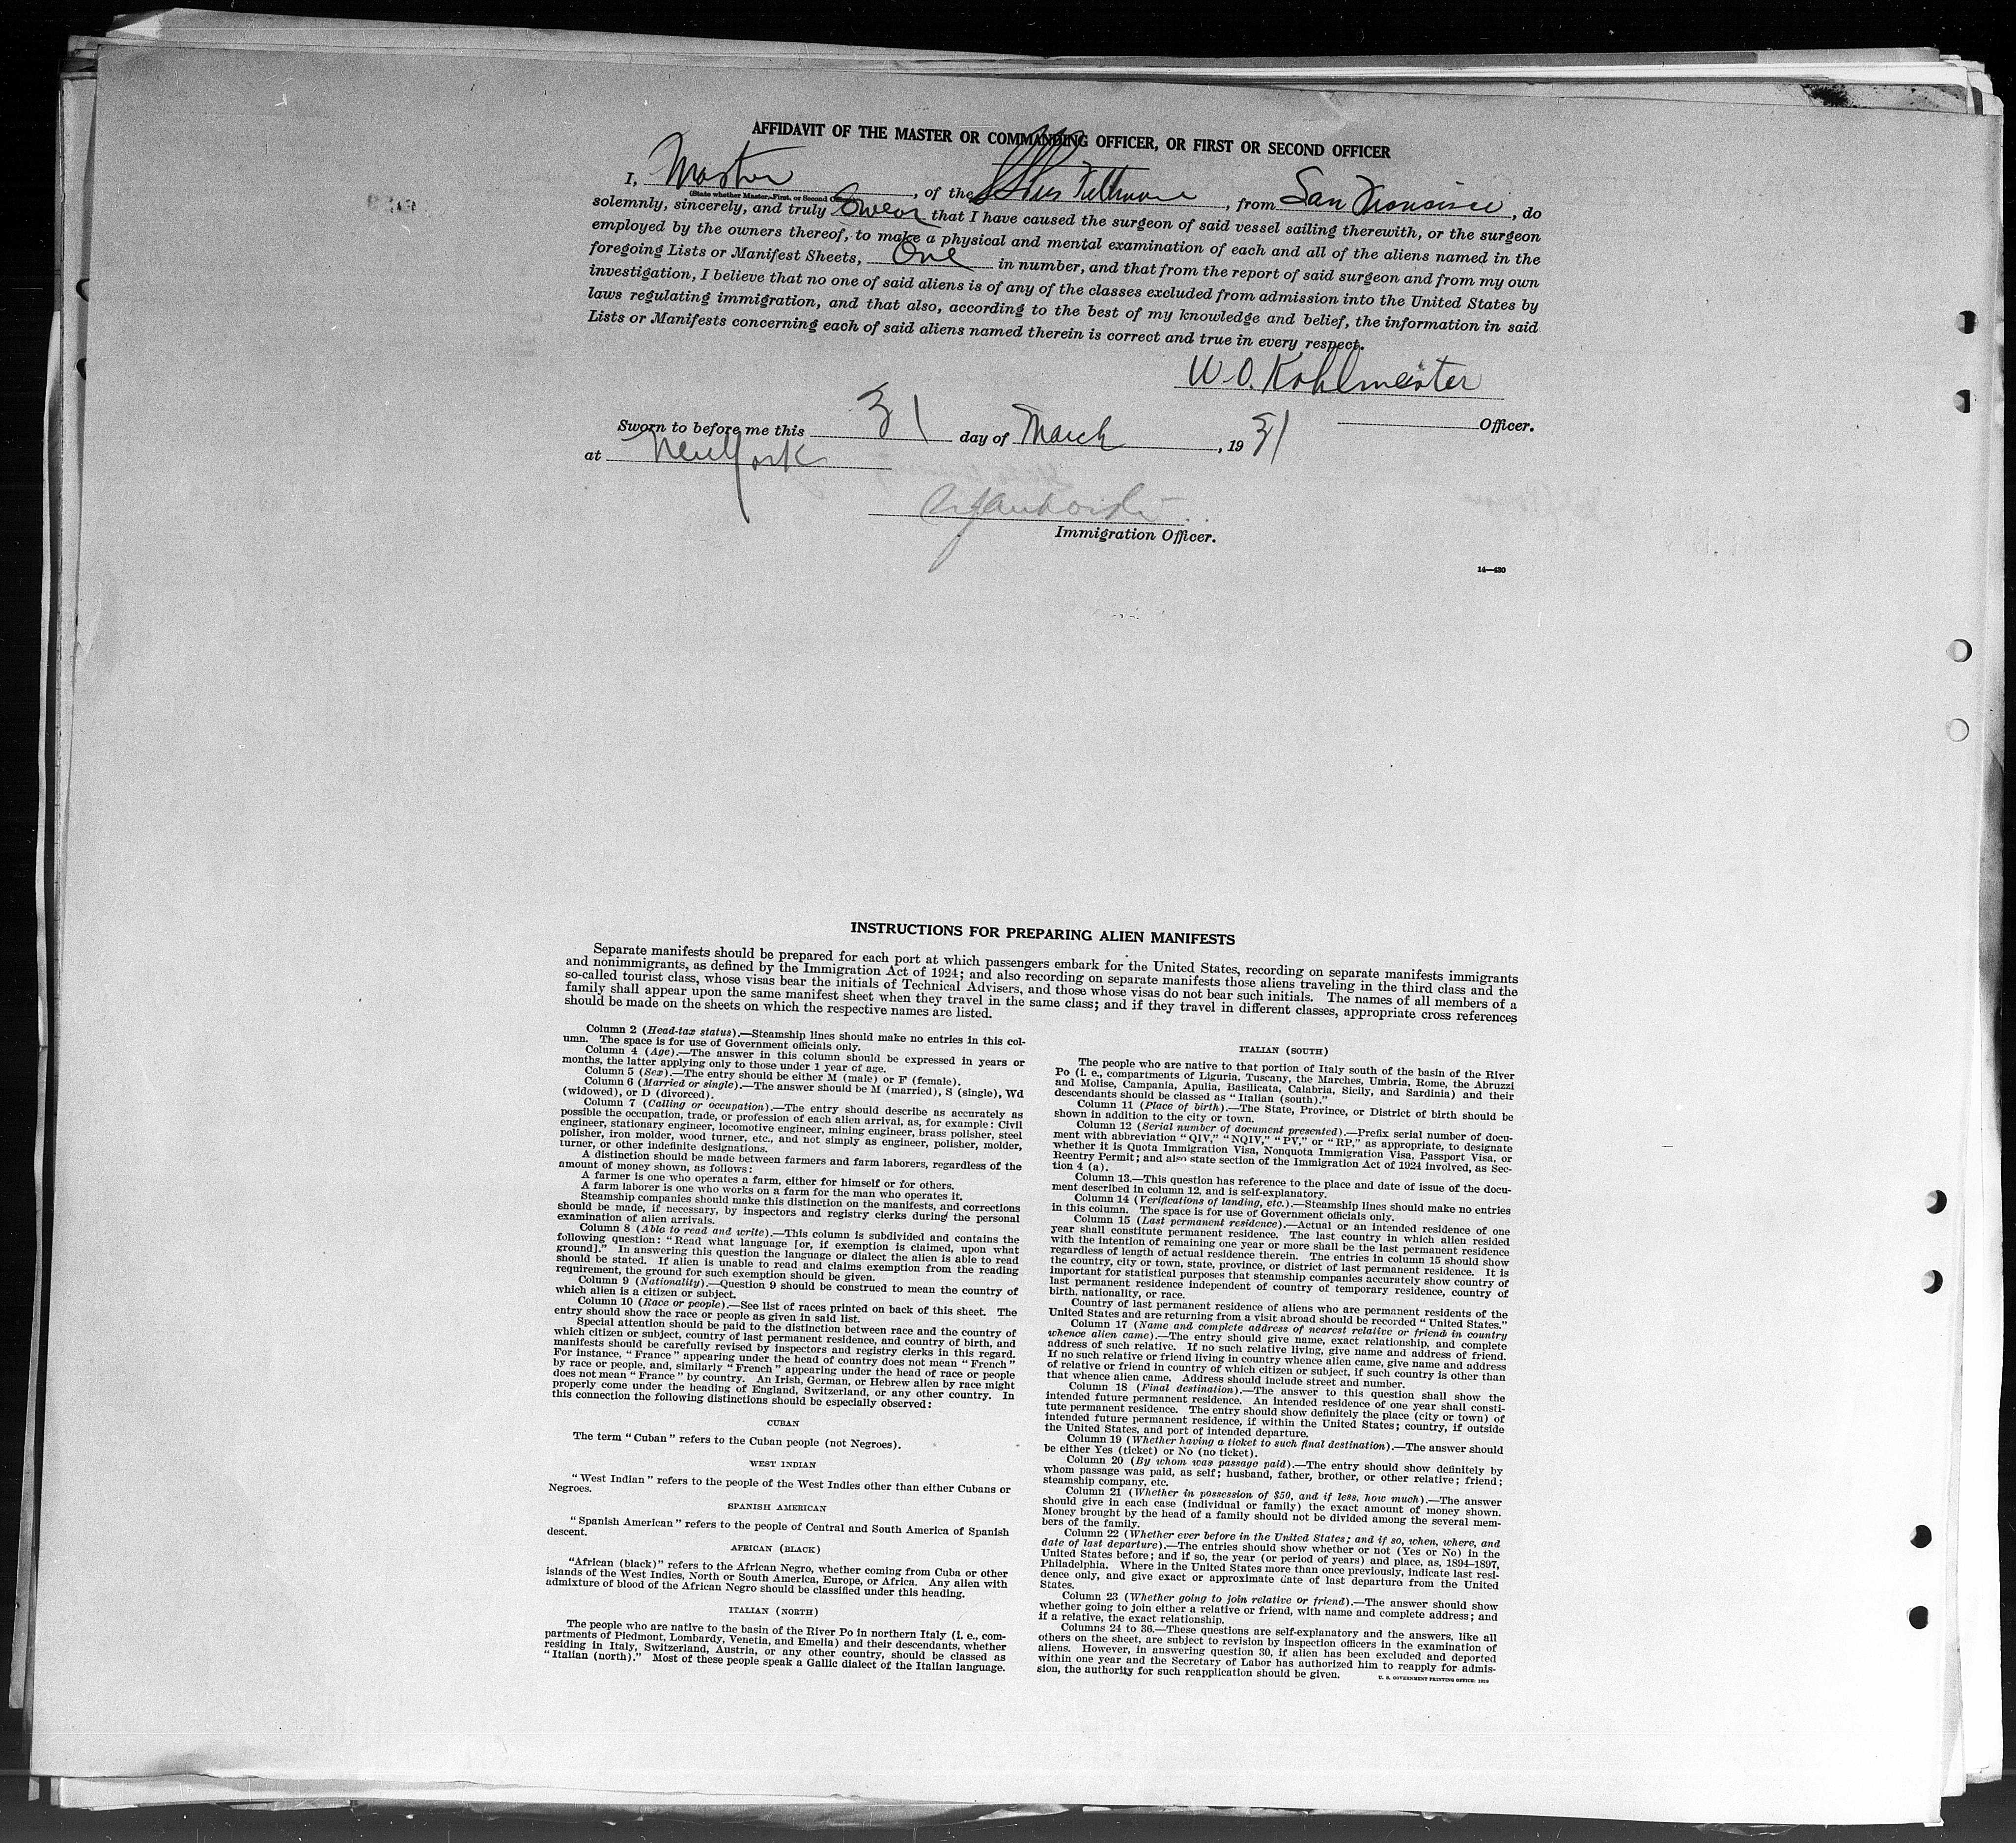 AFFIDAVIT OF THE MASTER OR COMMANDING OFFICER, OR FIRST OR SECOND OFFICER
I, Master, of the Pres Fillmore, from San Francisco, do
(State whether Master, First, or Second Officer)
solemnly, sincerely, and truly Swear that I have caused the surgeon of said vessel sailing therewith, or the surgeon
employed by the owners thereof, to make a physical and mental examination of each and all of the aliens named in the
foregoing Lists or Manifest Sheets, One in number, and that from the report of said surgeon and from my own
investigation, I believe that no one of said aliens is of any of the classes excluded from admission into the United States by
laws regulating immigration, and that also, according to the best of my knowledge and belief, the information in said
Lists or Manifests concerning each of said aliens named therein is correct and true in every respect.
W. O. Kohlmeister
Officer.
Sworn to before me this 31 day of March, 1931
at New York
Immigration Officer.
14—430
INSTRUCTIONS FOR PREPARING ALIEN MANIFESTS
Separate manifests should be prepared for each port at which passengers embark for the United States, recording on separate manifests immigrants
and nonimmigrants, as defined by the Immigration Act of 1924; and also recording on separate manifests those aliens traveling in the third class and the
so-called tourist class, whose visas bear the initials of Technical Advisers, and those whose visas do not bear such initials. The names of all members of a
family shall appear upon the same manifest sheet when they travel in the same class; and if they travel in different classes, appropriate cross references
should be made on the sheets on which the respective names are listed.
Column 2 (Head-tax status).—Steamship lines should make no entries in this col-
umn. The space is for use of Government officials only.
Column 4 (Age).—The answer in this column should be expressed in years or
months, the latter applying only to those under 1 year of age.
Column 5 (Sex).—The entry should be either M (male) or F (female).
Column 6 (Married or single).—The answer should be M (married), S (single), Wd
(widowed), or D (divorced).
Column 7 (Calling or occupation).—The entry should describe as accurately as
possible the occupation, trade, or profession of each alien arrival, as, for example: Civil
engineer, stationary engineer, locomotive engineer, mining engineer, brass polisher, steel
polisher, iron molder, wood turner, etc., and not simply as engineer, polisher, molder,
turner, or other indefinite designations.
A distinction should be made between farmers and farm laborers, regardless of the
amount of money shown, as follows:
A farmer is one who operates a farm, either for himself or for others.
A farm laborer is one who works on a farm for the man who operates it.
Steamship companies should make this distinction on the manifests, and corrections
should be made, if necessary, by inspectors and registry clerks during the personal
examination of alien arrivals.
Column 8 (Able to read and write).—This column is subdivided and contains the
following question: "Read what language [or, if exemption is claimed, upon what
ground]." In answering this question the language or dialect the alien is able to read
should be stated. If alien is unable to read and claims exemption from the reading
requirement, the ground for such exemption should be given.
Column 9 (Nationality).—Question 9 should be construed to mean the country of
which alien is a citizen or subject.
Column 10 (Race or people).—See list of races printed on back of this sheet. The
entry should show the race or people as given in said list.
Special attention should be paid to the distinction between race and the country of
which citizen or subject, country of last permanent residence, and country of birth, and
manifests should be carefully revised by inspectors and registry clerks in this regard.
For instance, "France" appearing under the head of country does not mean "French"
by race or people, and, similarly "French" appearing under the head of race or people
does not mean "France" by country. An Irish, German, or Hebrew alien by race might
properly come under the heading of England, Switzerland, or any other country. In
this connection the following distinctions should be especially observed:
CUBAN
The term "Cuban" refers to the Cuban people (not Negroes).
WEST INDIAN
"West Indian" refers to the people of the West Indies other than either Cubans or
Negroes.
SPANISH AMERICAN
"Spanish American" refers to the people of Central and South America of Spanish
descent.
AFRICAN (BLACK)
"African (black)" refers to the African Negro, whether coming from Cuba or other
islands of the West Indies, North or South America, Europe, or Africa. Any alien with
admixture of blood of the African Negro should be classified under this heading.
ITALIAN (NORTH)
The people who are native to the basin of the River Po in northern Italy (i. e., com-
partments of Piedmont, Lombardy, Venetia, and Emelia) and their descendants, whether
residing in Italy, Switzerland, Austria, or any other country, should be classed as
"Italian (north)." Most of these people speak a Gallic dialect of the Italian language.
ITALIAN (SOUTH)
The people who are native to that portion of Italy south of the basin of the River
Po (i. e., compartments of Liguria, Tuscany, the Marches, Umbria, Rome, the Abruzzi
and Molise, Campania, Apulia, Basilicata, Calabria, Sicily, and Sardinia) and their
descendants should be classed as "Italian (south)."
Column 11 (Place of birth).—The State, Province, or District of birth should be
shown in addition to the city or town.
Column 12 (Serial number of document presented).—Prefix serial number of docu-
ment with abbreviation "QIV," "NQIV," "PV," or "RP," as appropriate, to designate
whether it is Quota Immigration Visa, Nonquota Immigration Visa, Passport Visa, or
Reentry Permit; and also state section of the Immigration Act of 1924 involved, as Sec-
tion 4 (a).
Column 13.—This question has reference to the place and date of issue of the docu-
ment described in column 12, and is self-explanatory.
Column 14 (Verifications of landing, etc.).—Steamship lines should make no entries
in this column. The space is for use of Government officials only.
Column 15 (Last permanent residence).—Actual or an intended residence of one
year shall constitute permanent residence. The last country in which alien resided
with the intention of remaining one year or more shall be the last permanent residence
regardless of length of actual residence therein. The entries in column 15 should show
the country, city or town, state, province, or district of last permanent residence. It is
important for statistical purposes that steamship companies accurately show country of
last permanent residence independent of country of temporary residence, country of
birth, nationality, or race.
Country of last permanent residence of aliens who are permanent residents of the
United States and are returning from a visit abroad should be recorded "United States."
Column 17 (Name and complete address of nearest relative or friend in country
whence alien came).—The entry should give name, exact relationship, and complete
address of such relative. If no such relative living, give name and address of friend.
If no such relative or friend living in country whence alien came, give name and address
of relative or friend in country of which citizen or subject, if such country is other than
that whence alien came. Address should include street and number.
Column 18 (Final destination).—The answer to this question shall show the
intended future permanent residence. An intended residence of one year shall consti-
tute permanent residence. The entry should show definitely the place (city or town) of
intended future permanent residence, if within the United States; country, if outside
the United States, and port of intended departure.
Column 19 (Whether having a ticket to such final destination).—The answer should
be either Yes (ticket) or No (no ticket).
Column 20 (By whom was passage paid).—The entry should show definitely by
whom passage was paid, as self; husband, father, brother, or other relative; friend;
steamship company, etc.
Column 21 (Whether in possession of $50, and if less, how much).—The answer
should give in each case (individual or family) the exact amount of money shown.
Money brought by the head of a family should not be divided among the several mem-
bers of the family.
Column 22 (Whether ever before in the United States; and if so, when, where, and
date of last departure).—The entries should show whether or not (Yes or No) in the
United States before; and if so, the year (or period of years) and place, as, 1894–1897,
Philadelphia. Where in the United States more than once previously, indicate last resi-
dence only, and give exact or approximate date of last departure from the United
States.
Column 23 (Whether going to join relative or friend).—The answer should show
whether going to join either a relative or friend, with name and complete address; and
if a relative, the exact relationship.
Columns 24 to 36.—These questions are self-explanatory and the answers, like all
others on the sheet, are subject to revision by inspection officers in the examination of
aliens. However, in answering question 30, if alien has been excluded and deported
within one year and the Secretary of Labor has authorized him to reapply for admis-
sion, the authority for such reapplication should be given.
U. S. GOVERNMENT PRINTING OFFICE: 1929